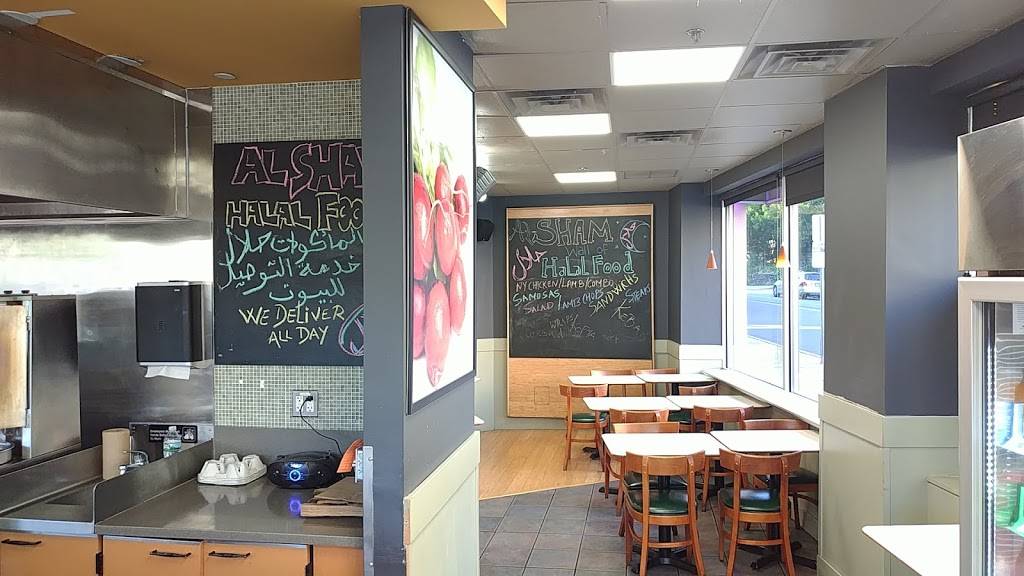 ALSHA
HALAL FOO
المأكولات حلال
خدمة التوصيل
للبيوت
WE DELIVER
ALL DAY
SHAM
حلال
Halal Food
NY CHICKEN/LAMB/COMBO
SAMOSAS
LAMB CHOPS
SALAD
SANDWICHES
STEAKS